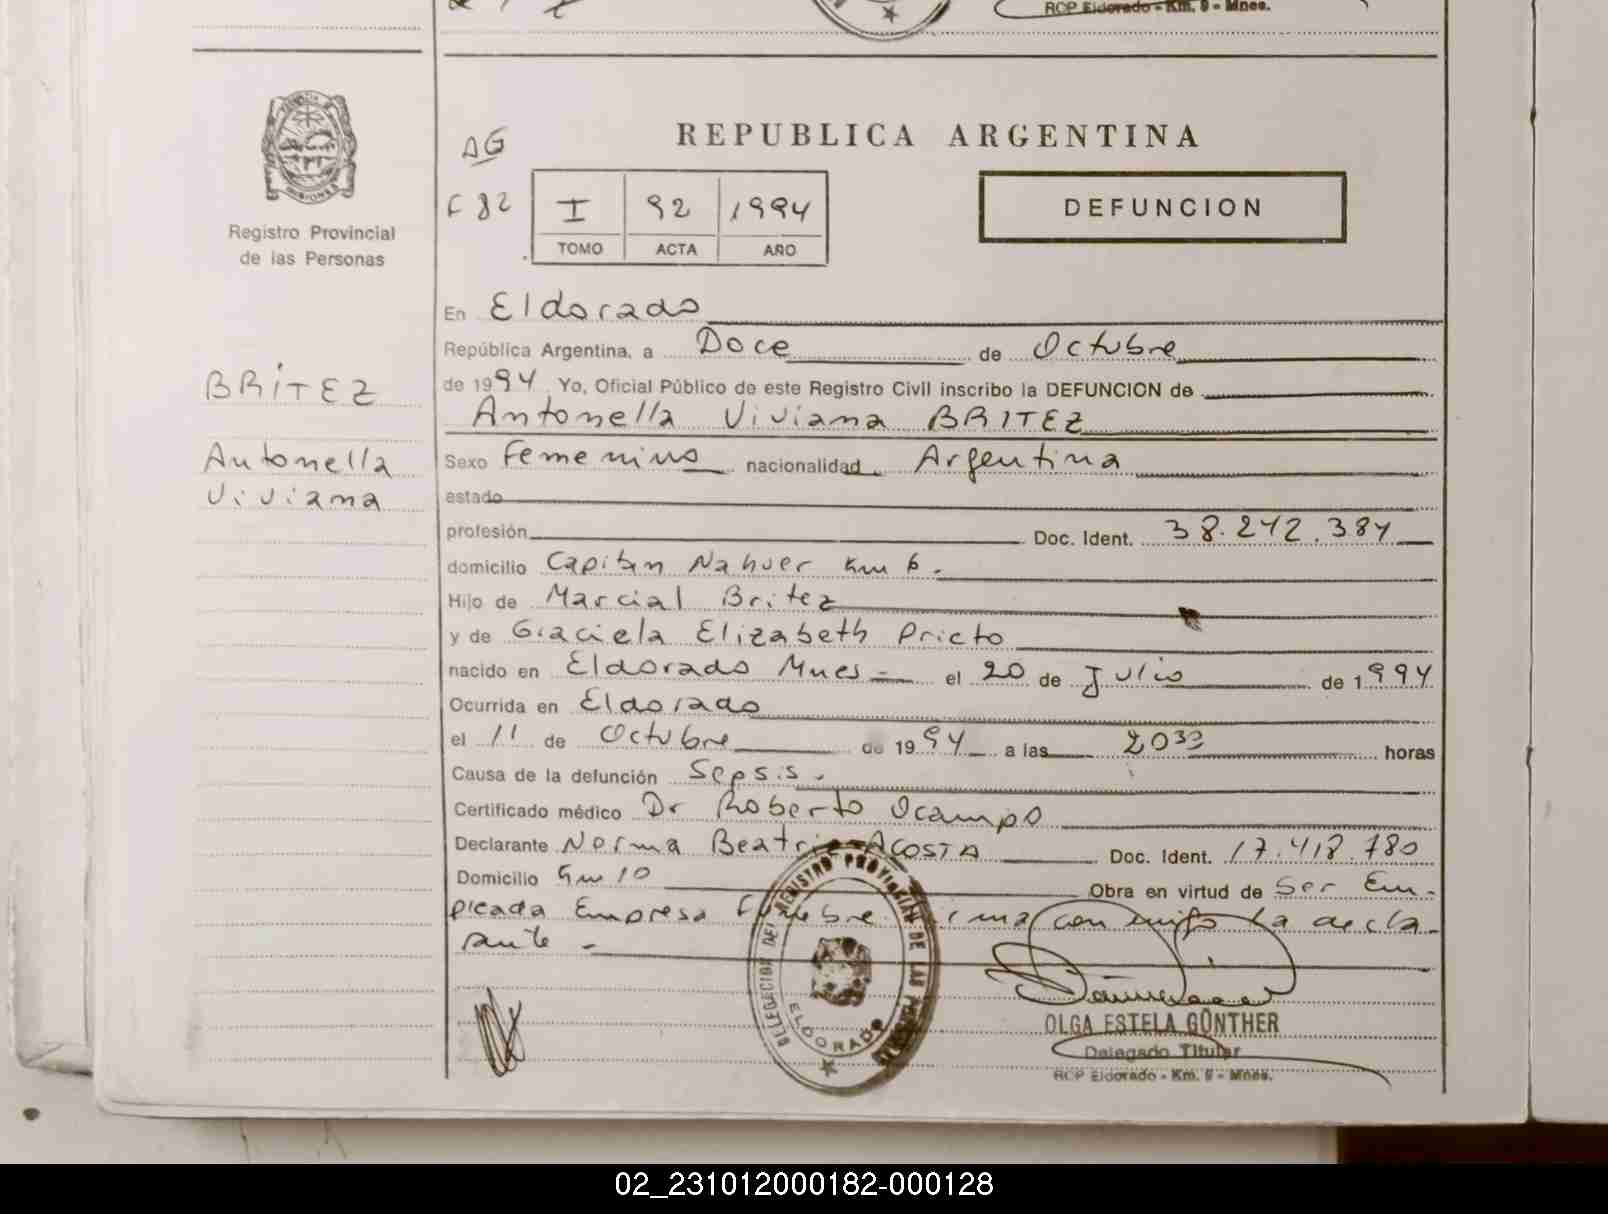 RCP Eldorado - Km. 9 - Mnes.
REPUBLICA ARGENTINA
AG
F 82
I 92 1994
TOMO ACTA AÑO
DEFUNCION
Registro Provincial
de las Personas
BRÍTEZ
Antonella
Viviana
En Eldorado
República Argentina, a Doce de Octubre
de 1994 Yo, Oficial Público de este Registro Civil inscribo la DEFUNCION de
Antonella Viviana BRITEZ
Sexo Femenino nacionalidad Argentina
estado
profesión Doc. Ident. 38.242.384
domicilio Capitan Nahuer Km 6.
Hijo de Marcial Britez
y de Graciela Elizabeth Prieto
nacido en Eldorado Mnes - el 20 de Julio de 1994
Ocurrida en Eldorado
el 11 de Octubre de 1994 a las 20 horas
Causa de la defunción Sepsis.
Certificado médico Dr Roberto Ocampo
Declarante Norma Beatriz ACOSTA Doc. Ident. 17.418.780
Domicilio Km 10 Obra en virtud de Ser Em-
pleada Empresa Funebre. Firma conmigo la decla-
rante -
DELEGACION DEL REGISTRO PROVINCIAL DE LAS PERSONAS
ELDORADO
OLGA ESTELA GÜNTHER
Delegado Titular
RCP Eldorado - Km. 9 - Mnes.
02_231012000182-000128